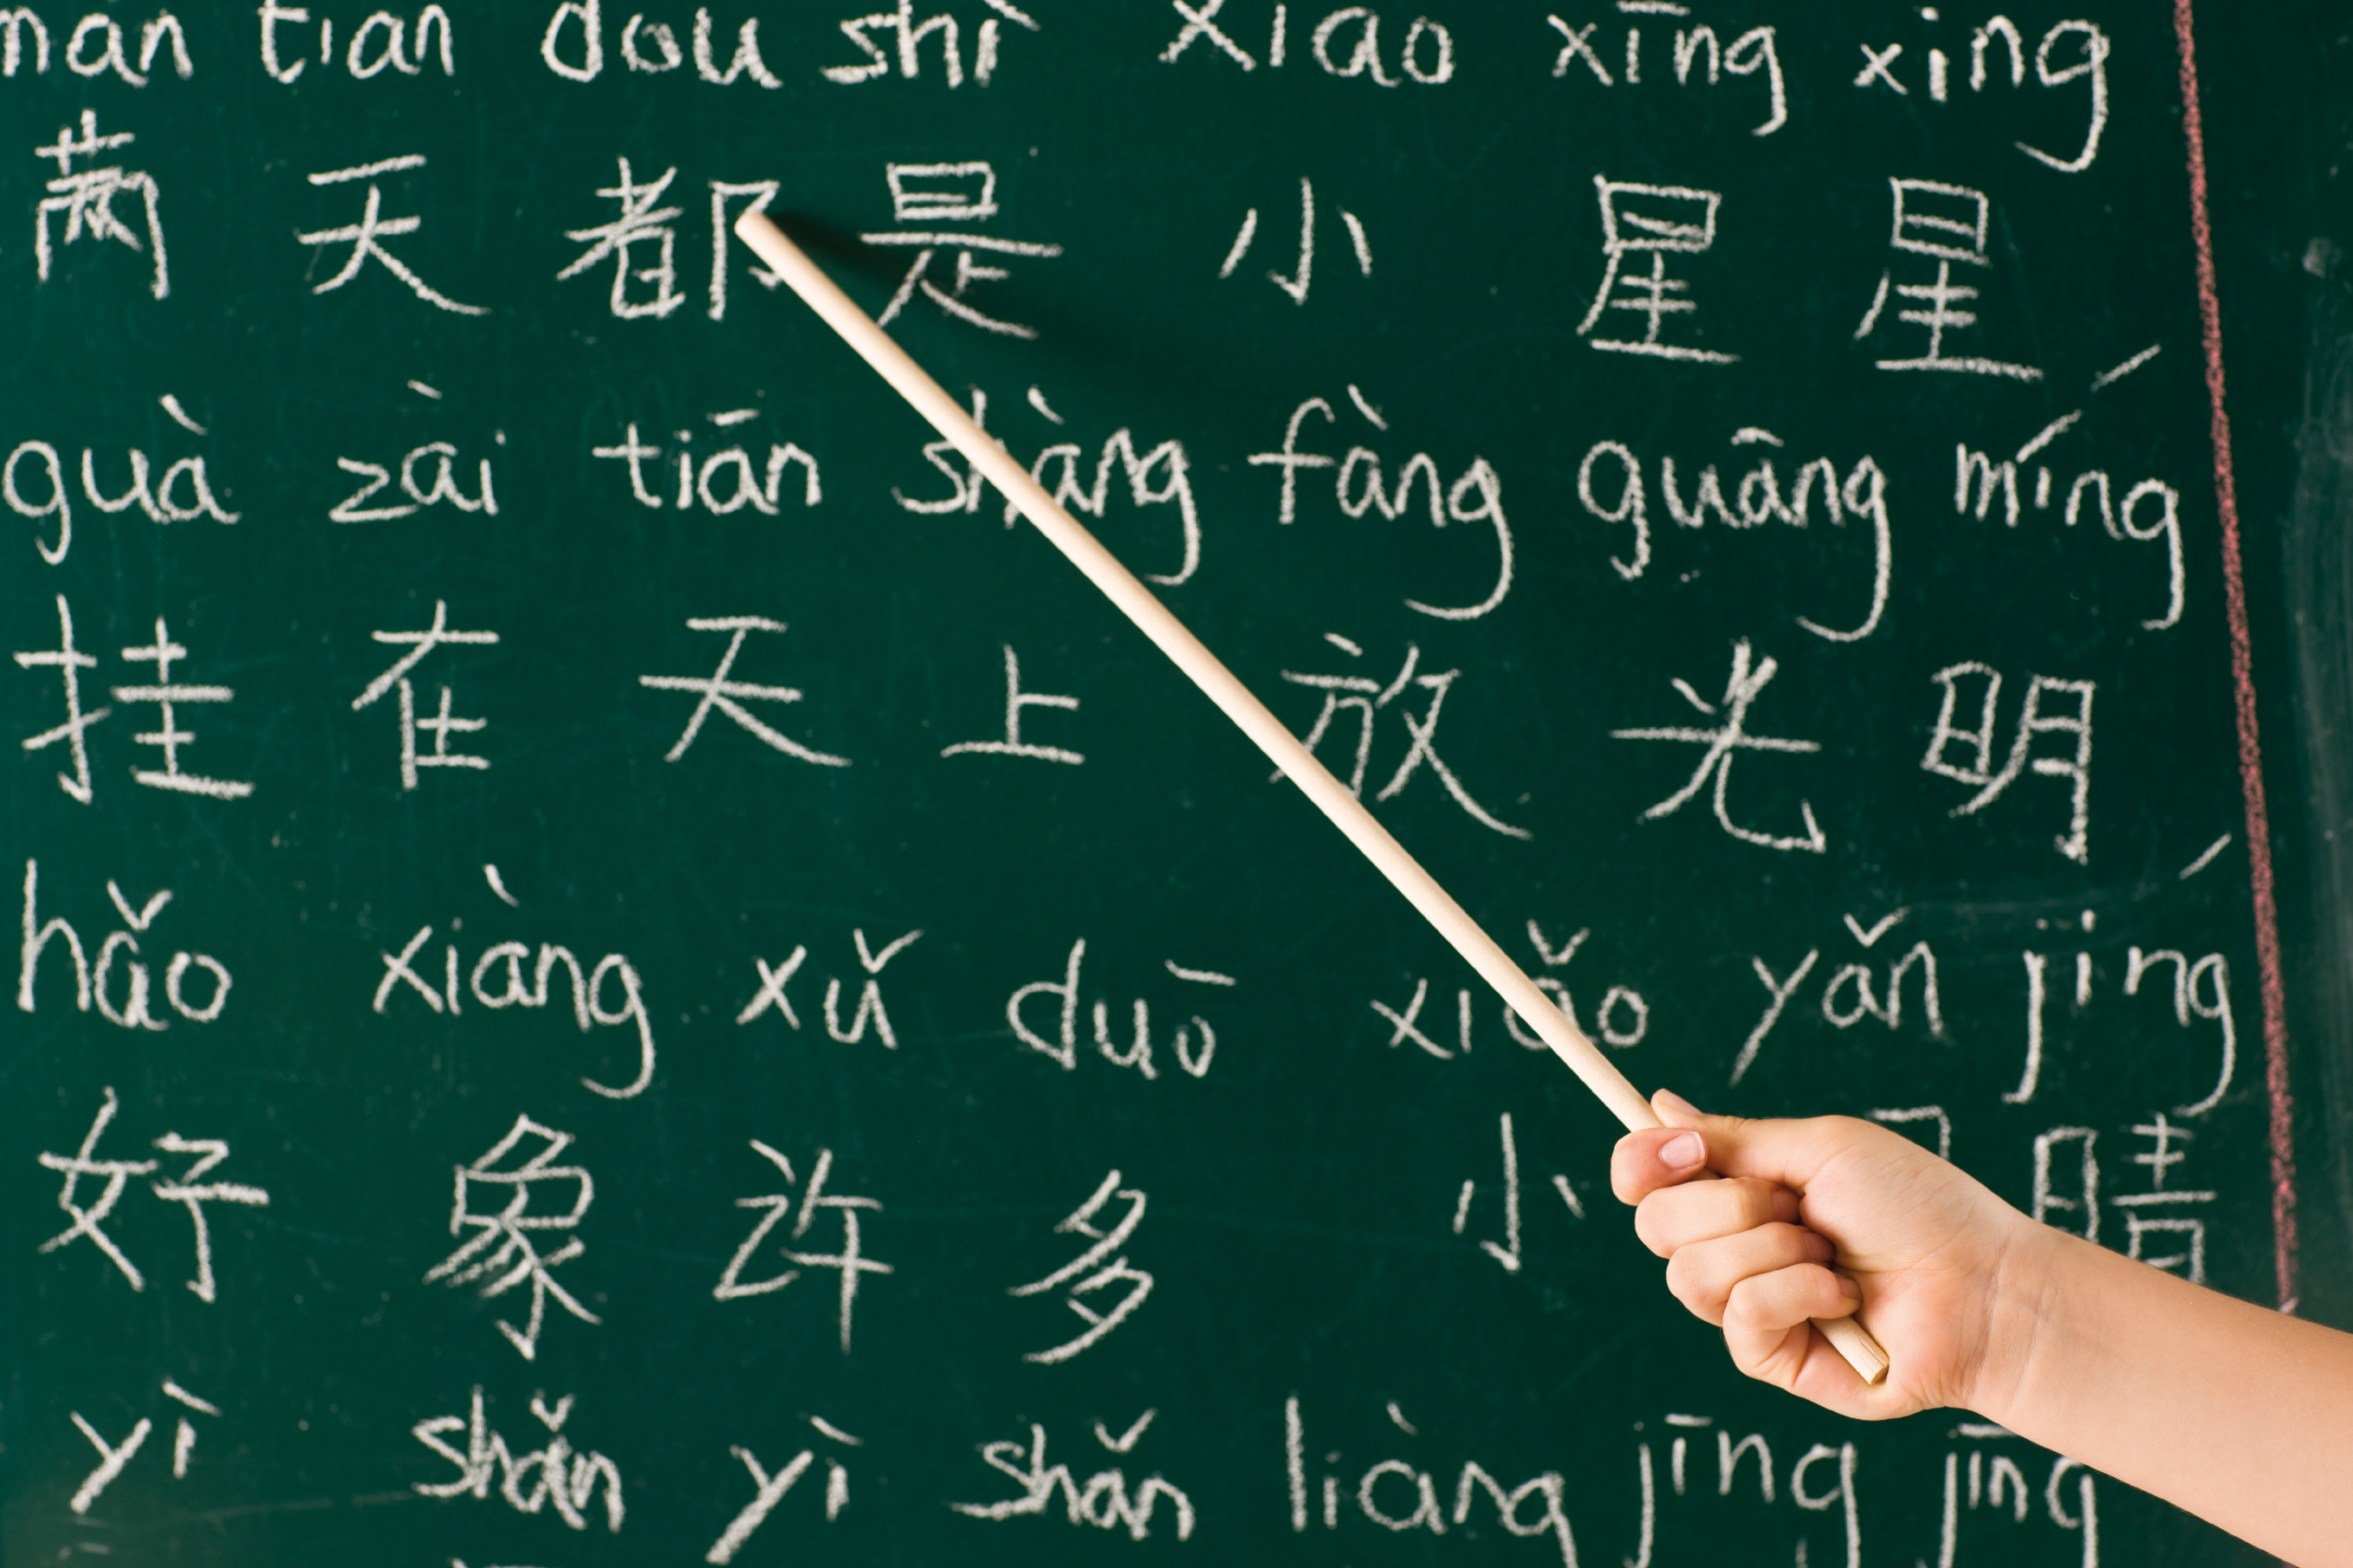 man tian dou shì xiao xīng xing
满 天 都 是 小 星 星
guà zài tiān shàng fàng guāng míng
挂 在 天 上 放 光 明
hǎo xiàng xǔ duō xiǎo yǎn jing
好 象 许 多 小 睛
yì shǎn yì shǎn liàng jīng jīng